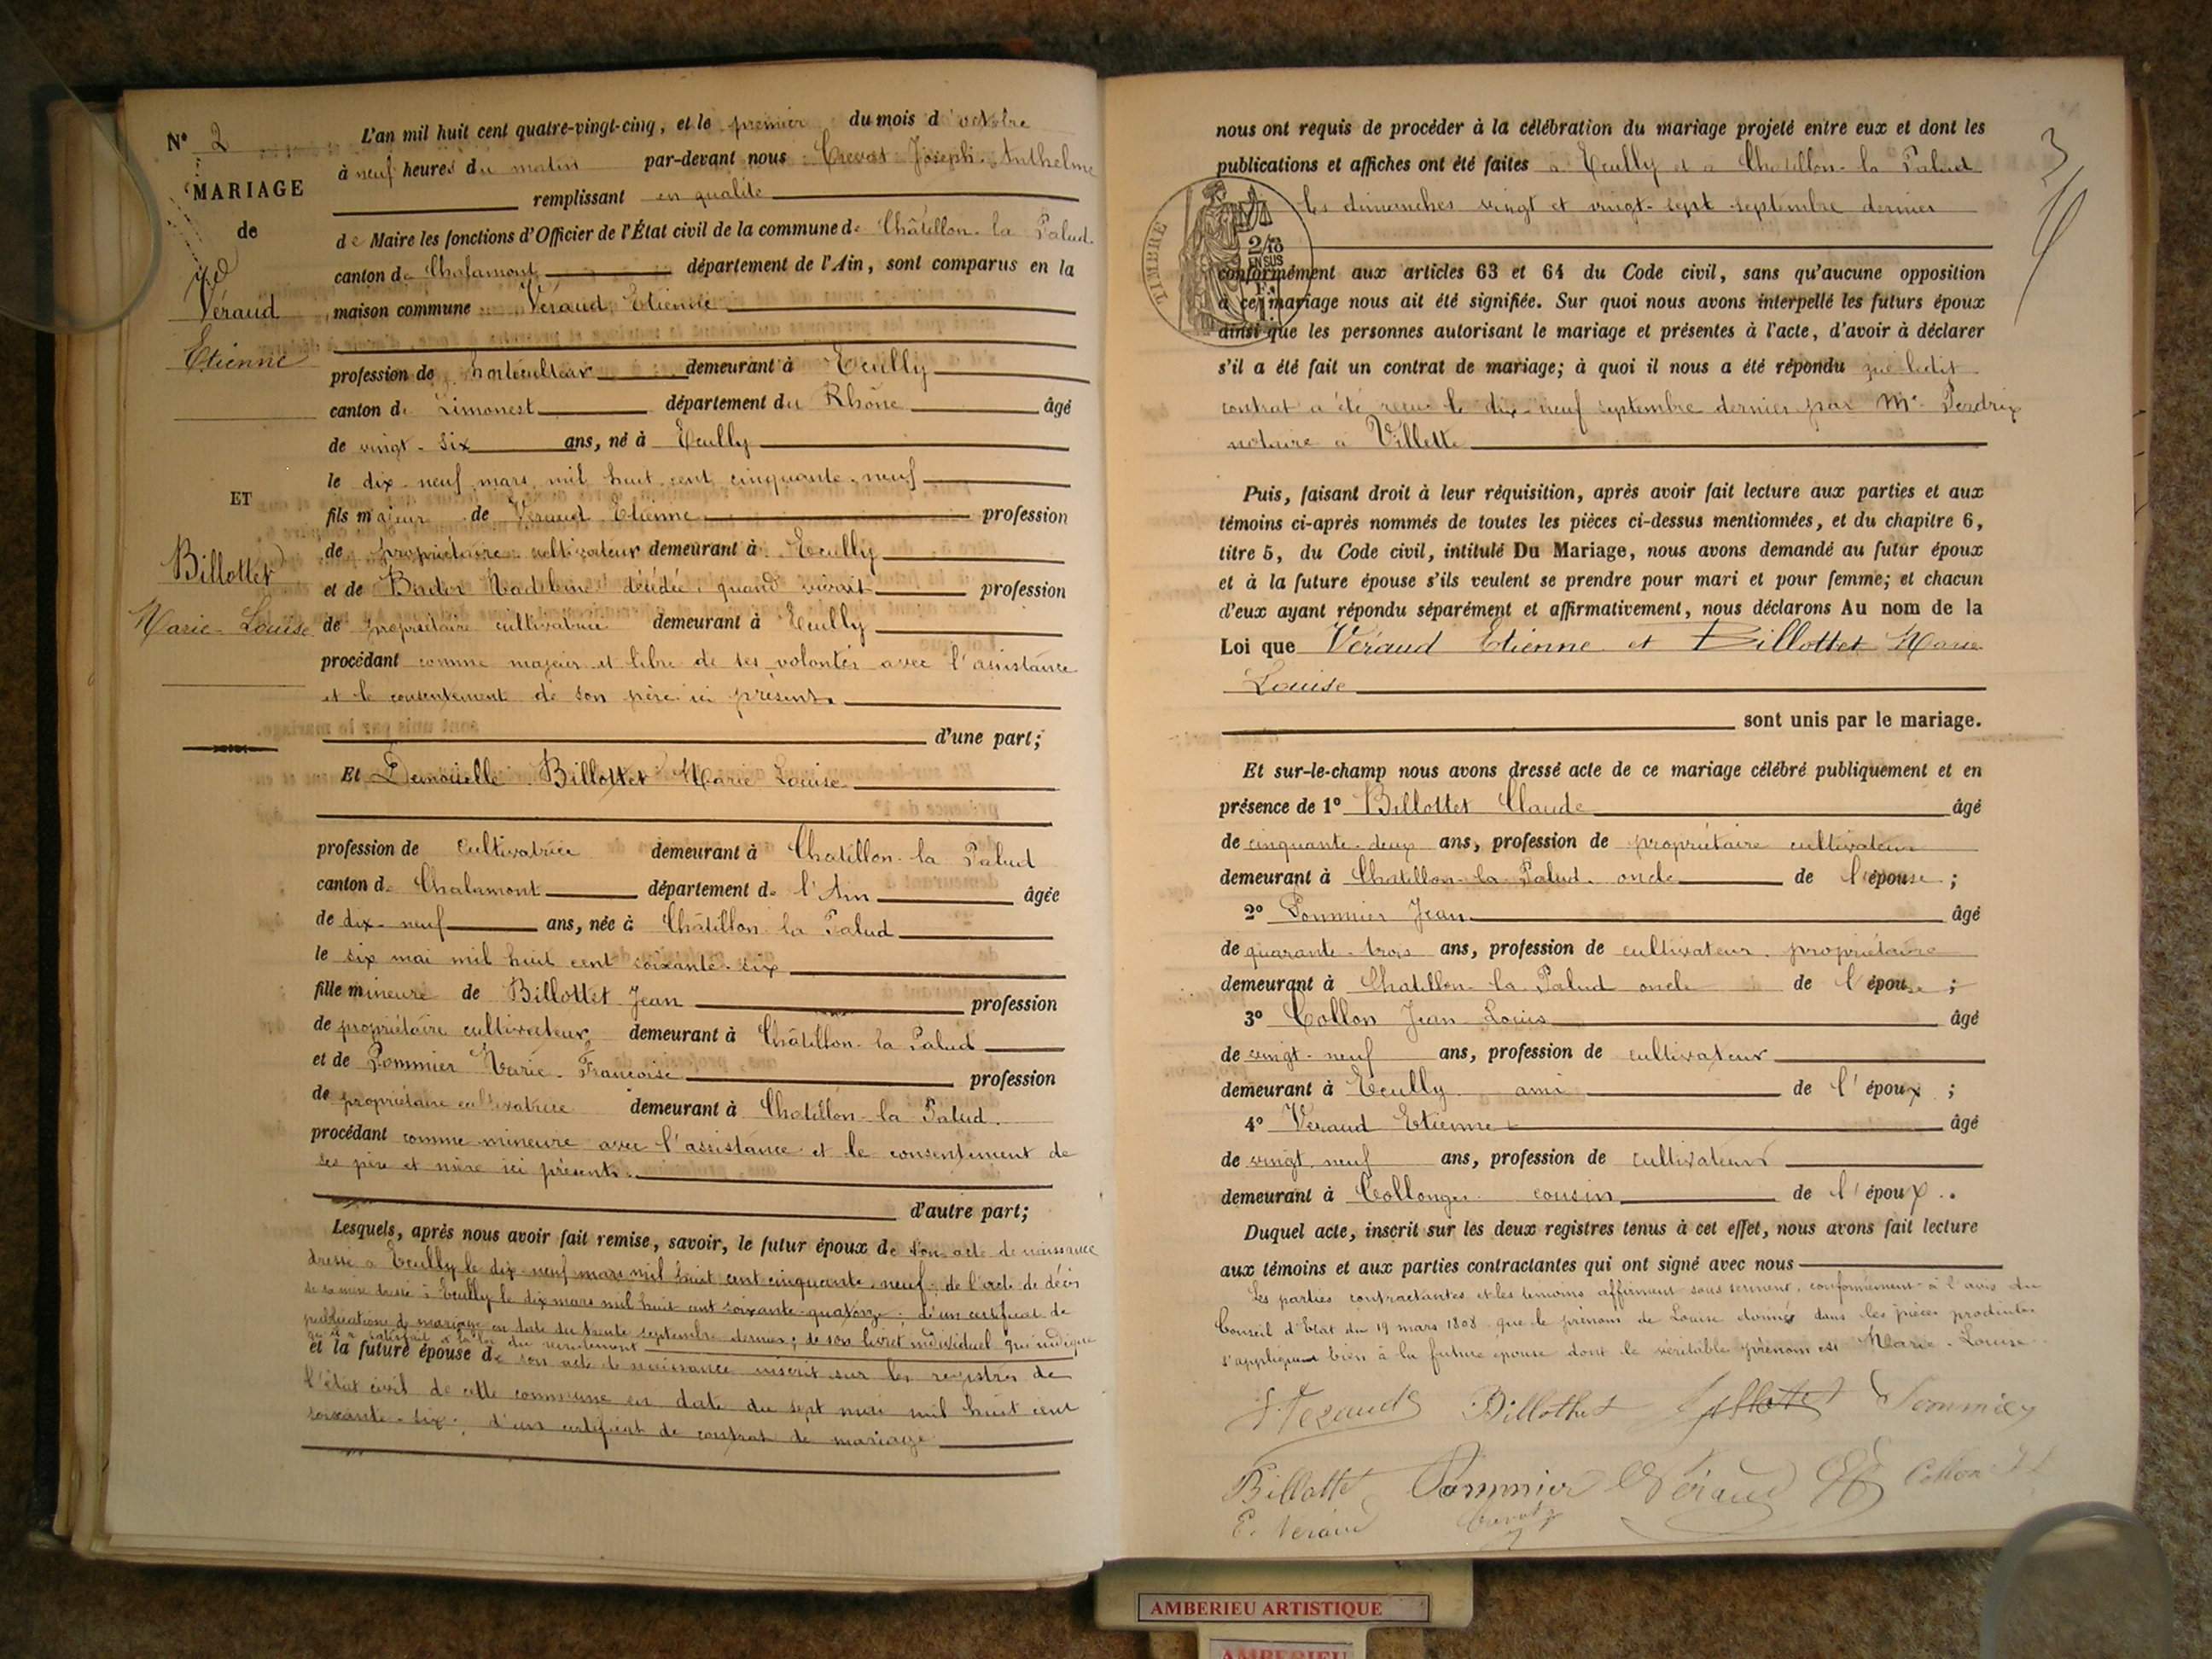 N° 2
MARIAGE
de
Véraud
Etienne
ET
Billottet
Marie-Louise
L'an mil huit cent quatre-vingt-cinq, et le premier du mois d'octobre
à neuf heures du matin par-devant nous Crevat Joseph-Anthelme
remplissant en qualité
de Maire les fonctions d'Officier de l'État civil de la commune de Châtillon-la Palud
canton de Chalamont département de l'Ain, sont comparus en la
maison commune Véraud Etienne
profession de horticulteur demeurant à Ecully
canton de Limonest département du Rhône âgé
de vingt-six ans, né à Ecully
le dix-neuf mars mil huit cent cinquante-neuf
fils majeur de Veraud Etienne profession
de propriétaire cultivateur demeurant à Ecully
et de Madeleine décédée, quand vivait profession
de propriétaire cultivatrice demeurant à Ecully
procédant comme majeur et libre de ses volontés avec l'assistance
et le consentement de son père ici présent.
d'une part;
Et Demoiselle Billottet Marie Louise
profession de cultivatrice demeurant à Chatillon-la Palud
canton de Chalamont département de l'Ain âgée
de dix-neuf ans, née à Châtillon la Palud
le six mai mil huit cent soixante-six
fille mineure de Billottet Jean profession
de propriétaire cultivateur demeurant à Châtillon-la Palud
et de Pommier Marie-Francoise profession
de propriétaire cultivatrice demeurant à Chatillon-la Palud.
procédant comme mineure avec l'assistance et le consentement de
ses père et mère ici présents.
d'autre part;
Lesquels, après nous avoir fait remise, savoir, le futur époux de son acte de naissance
dressé à Ecully le dix-neuf mars mil huit cent cinquante-neuf; de l'acte de décès
de sa mère dressé à Ecully le dix mars mil huit cent soixante-quatorze; d'un certificat de
publications de mariage en date du trente septembre dernier; de son livret individuel qui indique
qu'il a satisfait à la loi du recrutement
et la future épouse de son acte de naissance inscrit sur les registres de
l'état civil de cette commune en date du sept mai mil huit cent
soixante-six; d'un certificat de contrat de mariage
3
nous ont requis de procéder à la célébration du mariage projeté entre eux et dont les
publications et affiches ont été faites à Ecully et à Chatillon-la Palud
les dimanches vingt et vingt-sept septembre dernier
TIMBRE
2/10
EN SUS
conformément aux articles 63 et 64 du Code civil, sans qu'aucune opposition
à ce mariage nous ait été signifiée. Sur quoi nous avons interpellé les futurs époux
ainsi que les personnes autorisant le mariage et présentes à l'acte, d'avoir à déclarer
s'il a été fait un contrat de mariage; à quoi il nous a été répondu que ledit
contrat a été reçu le dix-neuf septembre dernier par Me Perdrix
notaire à Villette
Puis, faisant droit à leur réquisition, après avoir fait lecture aux parties et aux
témoins ci-après nommés de toutes les pièces ci-dessus mentionnées, et du chapitre 6,
titre 5, du Code civil, intitulé Du Mariage, nous avons demandé au futur époux
et à la future épouse s'ils veulent se prendre pour mari et pour femme; et chacun
d'eux ayant répondu séparément et affirmativement, nous déclarons Au nom de la
Loi que Véraud Etienne et Billottet Marie
Louise
sont unis par le mariage.
Et sur-le-champ nous avons dressé acte de ce mariage célébré publiquement et en
présence de 1° Billottet Claude âgé
de cinquante-deux ans, profession de propriétaire cultivateur
demeurant à Chatillon-la Palud. oncle de l'épouse;
2° Pommier Jean âgé
de quarante-trois ans, profession de cultivateur propriétaire
demeurant à Chatillon-la Palud oncle de l'épouse;
3° Collon Jean-Louis âgé
de vingt-neuf ans, profession de cultivateur
demeurant à Ecully ami de l'époux;
4° Veraud Etienne âgé
de vingt-neuf ans, profession de cultivateur
demeurant à Collonges cousin de l'époux.
Duquel acte, inscrit sur les deux registres tenus à cet effet, nous avons fait lecture
aux témoins et aux parties contractantes qui ont signé avec nous
Les parties contractantes et les témoins affirment sous serment, conformément à l'avis du
Conseil d'Etat du 19 mars 1808 que le prénom de Louise donné dans les pièces produites
s'applique bien à la future épouse dont le véritable prénom est Marie-Louise
Veraud Billottet Billotet Pommier
Billottet Pommier Véraud Collon JL
E. Veraud Crevat
AMBERIEU ARTISTIQUE
AMBERIEU